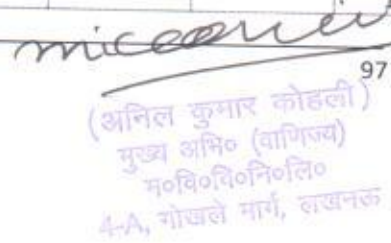 97
(अनिल कुमार कोहली)
मुख्य अभि० (वाणिज्य)
म०वि०वि०नि०लि०
4-A, गोखले मार्ग, लखनऊ